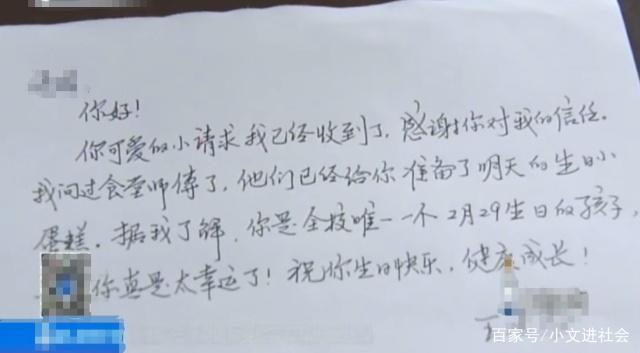 你好！
你可爱的小请求我已经收到了，感谢你对我的信任。
我问过食堂师傅了，他们已经给你准备了明天的生日小
蛋糕。据我了解，你是全校唯一一个2月29生日的孩子，
你真是太幸运了！祝你生日快乐，健康成长！
百家号/小文进社会